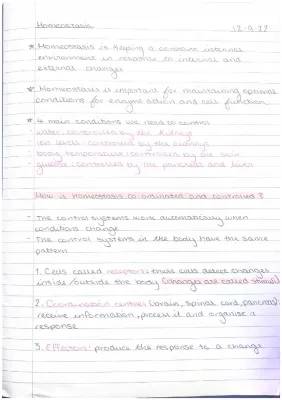 Homeostasis 12-9-22
* Homeostasis is keeping a constant internal
environment in response to internal and
external changes
* Homeostasis is important for maintaining optimal
conditions for enzyme action and cell function
* 4 main conditions we need to control
- water controlled by the kidneys
- ion levels: controlled by the kidneys
- body temperature: controlled by the skin
- glucose: controlled by the pancreas and liver
How is homeostasis co-ordinated and controlled?
- The control systems work automatically when
conditions change
- The control systems in the body have the same
pattern
1. Cells called receptors: these cells detect changes
inside/outside the body (changes are called stimuli)
2. Coordination centres (brain, spinal cord, pancreas):
receive information, process it and organise a
response
3. Effectors: produce the response to a change